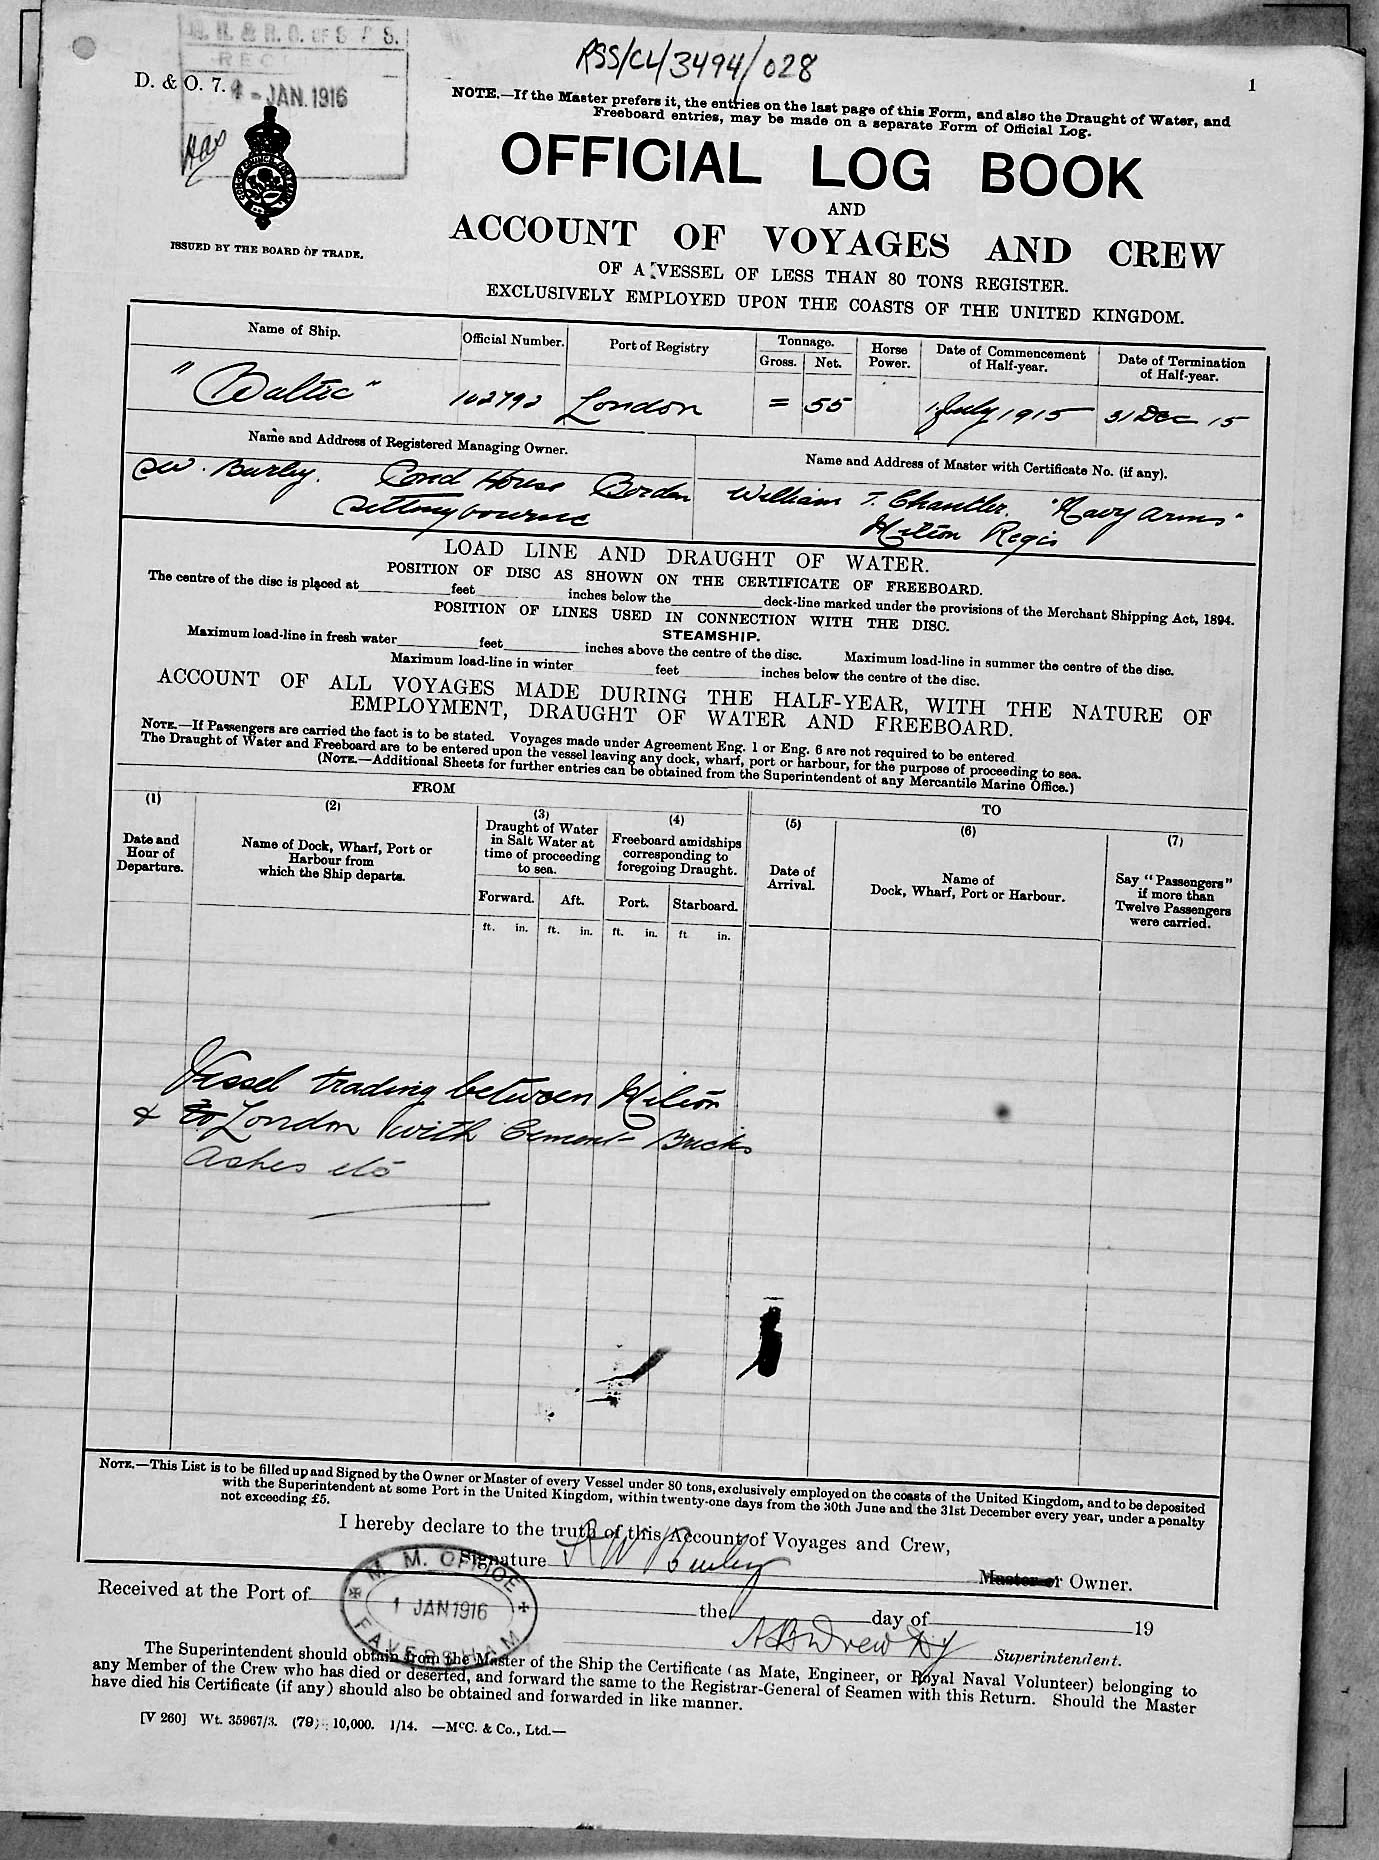 RSS/CL/3494/028
R. G. OF S. & S.
REC
D. & O. 7.
- JAN. 1916
1
NOTE.—If the Master prefers it, the entries on the last page of this Form, and also the Draught of Water, and
Freeboard entries, may be made on a separate Form of Official Log.
OFFICIAL LOG BOOK
AND
ACCOUNT OF VOYAGES AND CREW
ISSUED BY THE BOARD OF TRADE.
OF A VESSEL OF LESS THAN 80 TONS REGISTER.
EXCLUSIVELY EMPLOYED UPON THE COASTS OF THE UNITED KINGDOM.
Name of Ship.
Official Number.
Port of Registry
Tonnage.
Gross. Net.
Horse
Power.
Date of Commencement
of Half-year.
Date of Termination
of Half-year.
"Baltic" 102792 London = 55 1 July 1915 31 Dec 15
Name and Address of Registered Managing Owner.
Name and Address of Master with Certificate No. (if any).
Burley. Cond House Borden
Sittingbourne
William T. Chantler. "Navy Arms"
Milton Regis
LOAD LINE AND DRAUGHT OF WATER.
POSITION OF DISC AS SHOWN ON THE CERTIFICATE OF FREEBOARD.
The centre of the disc is placed at feet inches below the deck-line marked under the provisions of the Merchant Shipping Act, 1894.
POSITION OF LINES USED IN CONNECTION WITH THE DISC.
STEAMSHIP.
Maximum load-line in fresh water feet inches above the centre of the disc. Maximum load-line in summer the centre of the disc.
Maximum load-line in winter feet inches below the centre of the disc.
ACCOUNT OF ALL VOYAGES MADE DURING THE HALF-YEAR, WITH THE NATURE OF
EMPLOYMENT, DRAUGHT OF WATER AND FREEBOARD.
NOTE.—If Passengers are carried the fact is to be stated. Voyages made under Agreement Eng. 1 or Eng. 6 are not required to be entered
The Draught of Water and Freeboard are to be entered upon the vessel leaving any dock, wharf, port or harbour, for the purpose of proceeding to sea.
(NOTE.—Additional Sheets for further entries can be obtained from the Superintendent of any Mercantile Marine Office.)
FROM
TO
(1)
Date and
Hour of
Departure.
(2)
Name of Dock, Wharf, Port or
Harbour from
which the Ship departs.
(3)
Draught of Water
in Salt Water at
time of proceeding
to sea.
Forward. Aft.
ft. in. ft. in.
(4)
Freeboard amidships
corresponding to
foregoing Draught.
Port. Starboard.
ft. in. ft in.
(5)
Date of
Arrival.
(6)
Name of
Dock, Wharf, Port or Harbour.
(7)
Say "Passengers"
if more than
Twelve Passengers
were carried.
Vessel trading between Milton
& to London with Cement Bricks
Ashes etc
NOTE.—This List is to be filled up and Signed by the Owner or Master of every Vessel under 80 tons, exclusively employed on the coasts of the United Kingdom, and to be deposited
with the Superintendent at some Port in the United Kingdom, within twenty-one days from the 30th June and the 31st December every year, under a penalty
not exceeding £5.
I hereby declare to the truth of this Account of Voyages and Crew,
Signature Burley Master or Owner.
Received at the Port of the day of 19
M. M. OFFICE
1 JAN 1916
FAVERSHAM
Superintendent.
The Superintendent should obtain from the Master of the Ship the Certificate (as Mate, Engineer, or Royal Naval Volunteer) belonging to
any Member of the Crew who has died or deserted, and forward the same to the Registrar-General of Seamen with this Return. Should the Master
have died his Certificate (if any) should also be obtained and forwarded in like manner.
[V 260] Wt. 35967/3. (79) 10,000. 1/14. —McC. & Co., Ltd.—